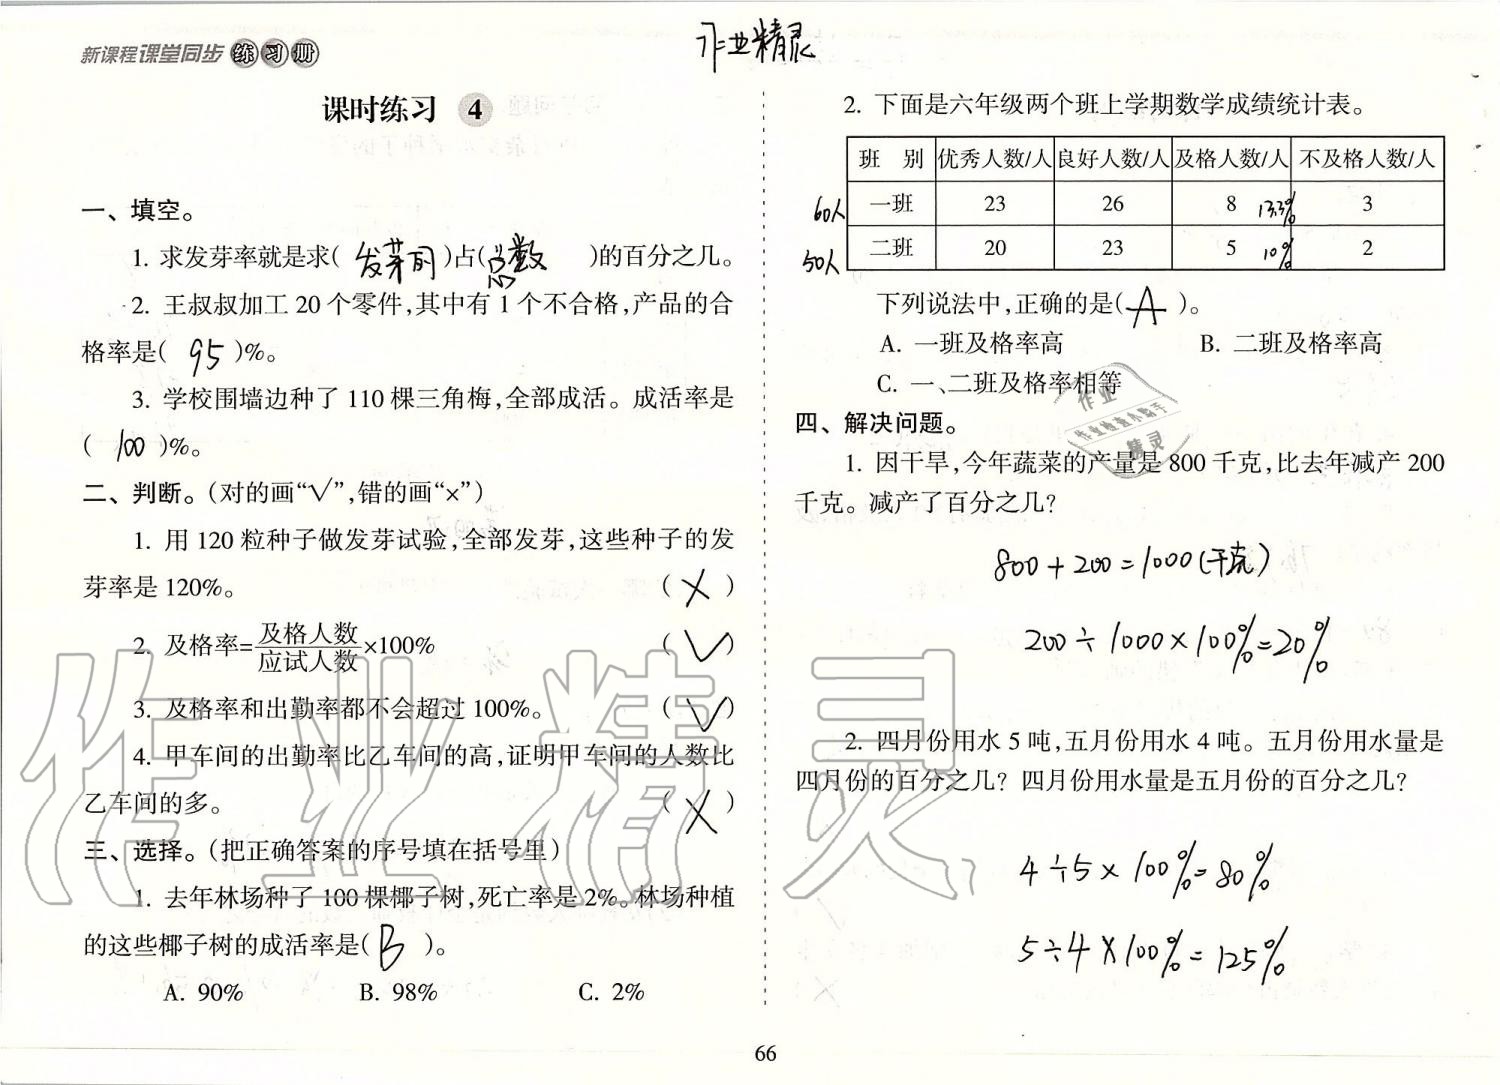 新课程课堂同步练习册
作业精灵
课时练习 4
一、填空。
1. 求发芽率就是求( 发芽的 )占( 总数 )的百分之几。
2. 王叔叔加工 20 个零件,其中有 1 个不合格,产品的合
格率是( 95 )%。
3. 学校围墙边种了 110 棵三角梅,全部成活。成活率是
( 100 )%。
二、判断。(对的画“√”,错的画“×”)
1. 用 120 粒种子做发芽试验,全部发芽,这些种子的发
芽率是 120%。 ( × )
2. 及格率=及格人数/应试人数×100% ( √ )
3. 及格率和出勤率都不会超过 100%。 ( √ )
4. 甲车间的出勤率比乙车间的高,证明甲车间的人数比
乙车间的多。 ( × )
三、选择。(把正确答案的序号填在括号里)
1. 去年林场种了 100 棵椰子树,死亡率是 2%。林场种植
的这些椰子树的成活率是( B )。
A. 90% B. 98% C. 2%
2. 下面是六年级两个班上学期数学成绩统计表。
班 别 优秀人数/人 良好人数/人 及格人数/人 不及格人数/人
60人 一班 23 26 8 13.3% 3
50人 二班 20 23 5 10% 2
下列说法中,正确的是( A )。
A. 一班及格率高 B. 二班及格率高
C. 一、二班及格率相等
四、解决问题。
1. 因干旱,今年蔬菜的产量是 800 千克,比去年减产 200
千克。减产了百分之几?
800+200=1000(千克)
200÷1000×100%=20%
2. 四月份用水 5 吨,五月份用水 4 吨。五月份用水量是
四月份的百分之几? 四月份用水量是五月份的百分之几?
4÷5×100%=80%
5÷4×100%=125%
66
作业精灵
作业
作业检查小助手
精灵